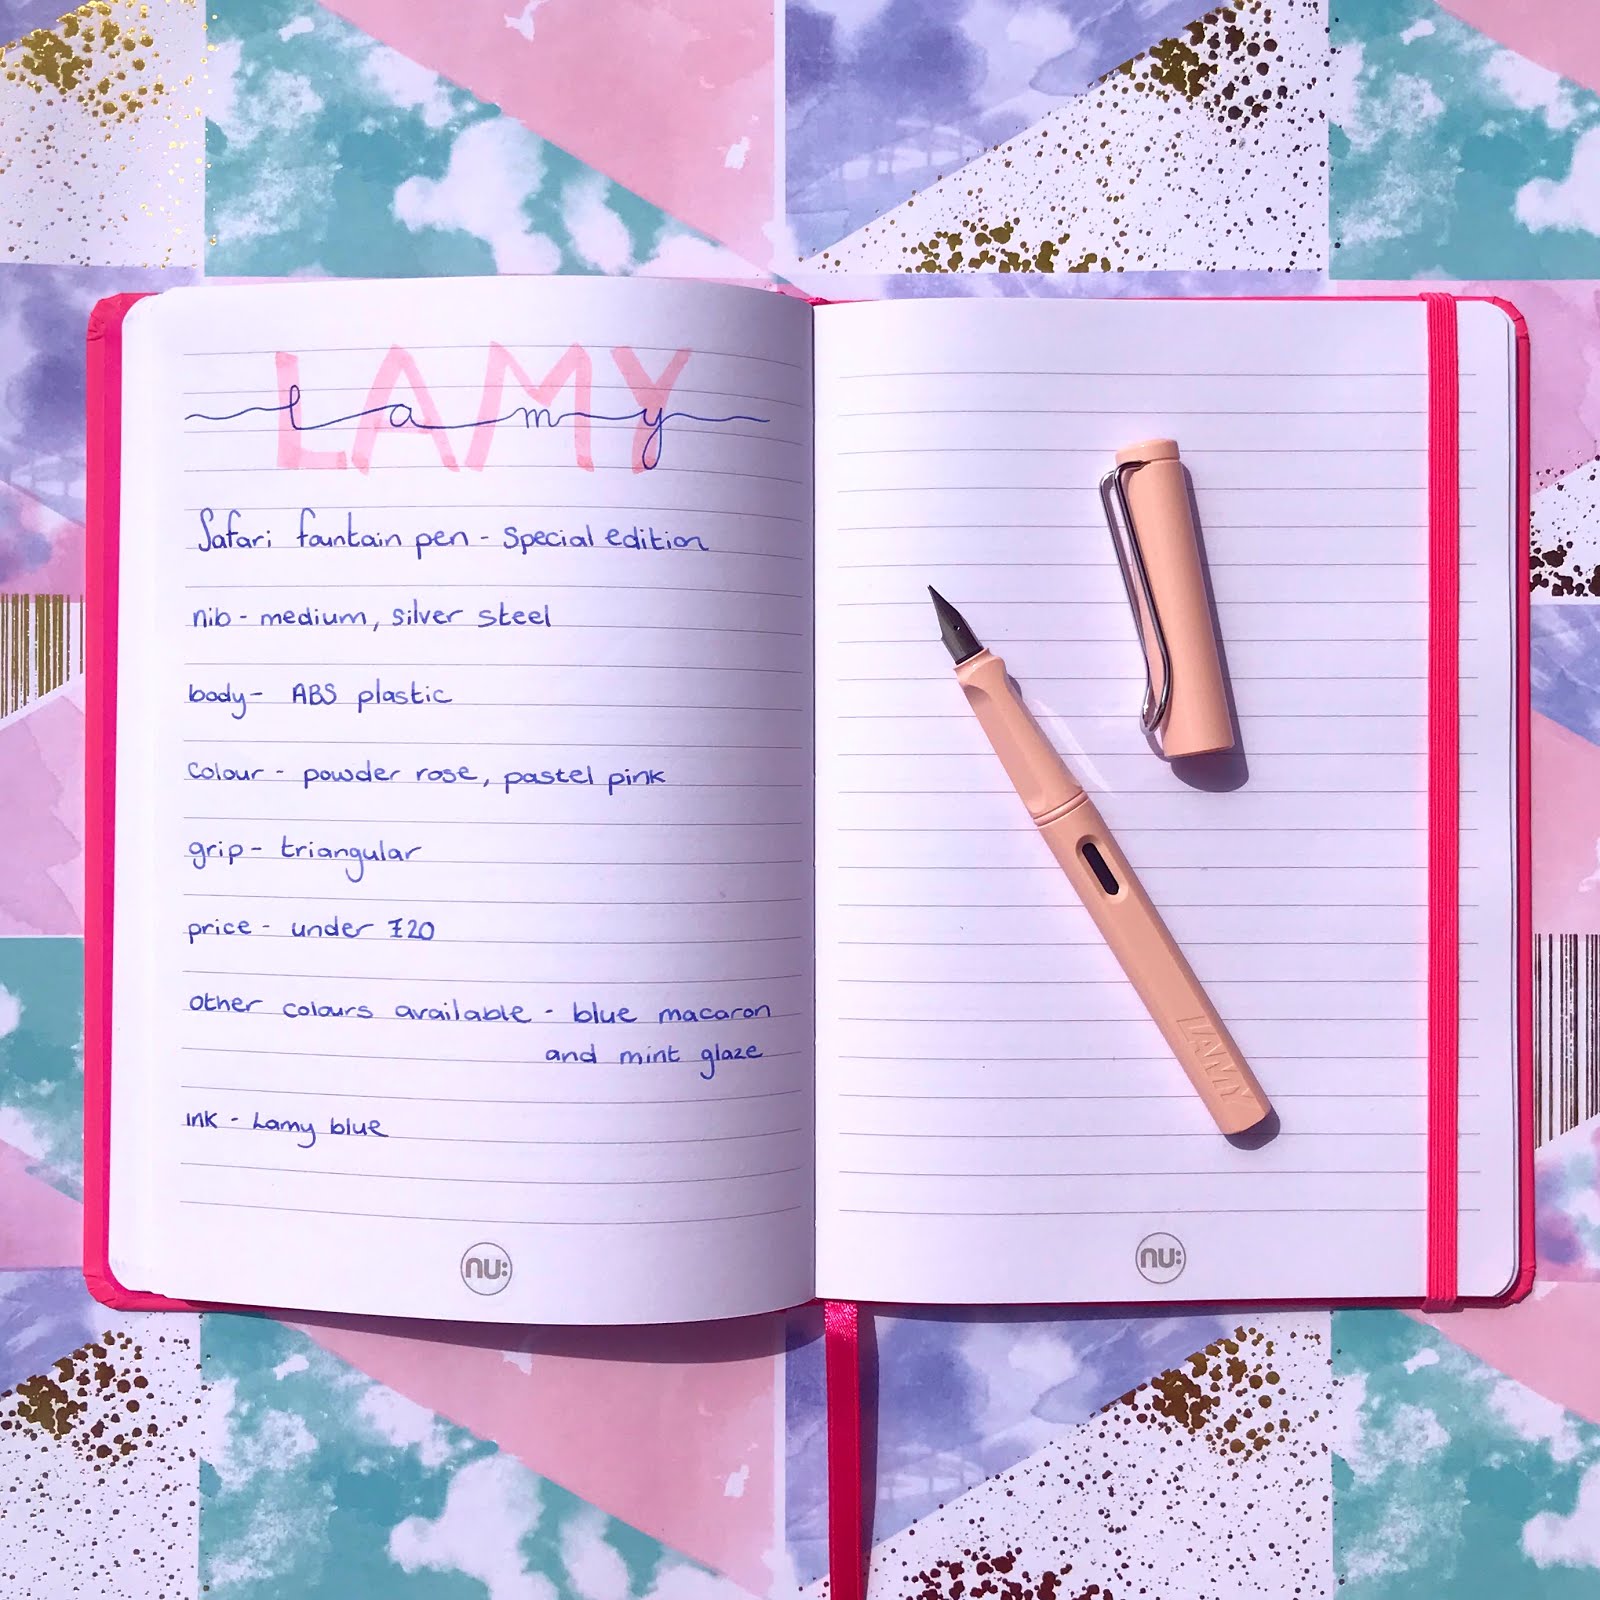 LAMY
lamy
Safari fountain pen - Special edition
nib - medium, silver steel
body - ABS plastic
colour - powder rose, pastel pink
grip - triangular
price - under £20
other colours available - blue macaron
and mint glaze
ink - Lamy blue
nu:
LAMY
nu: